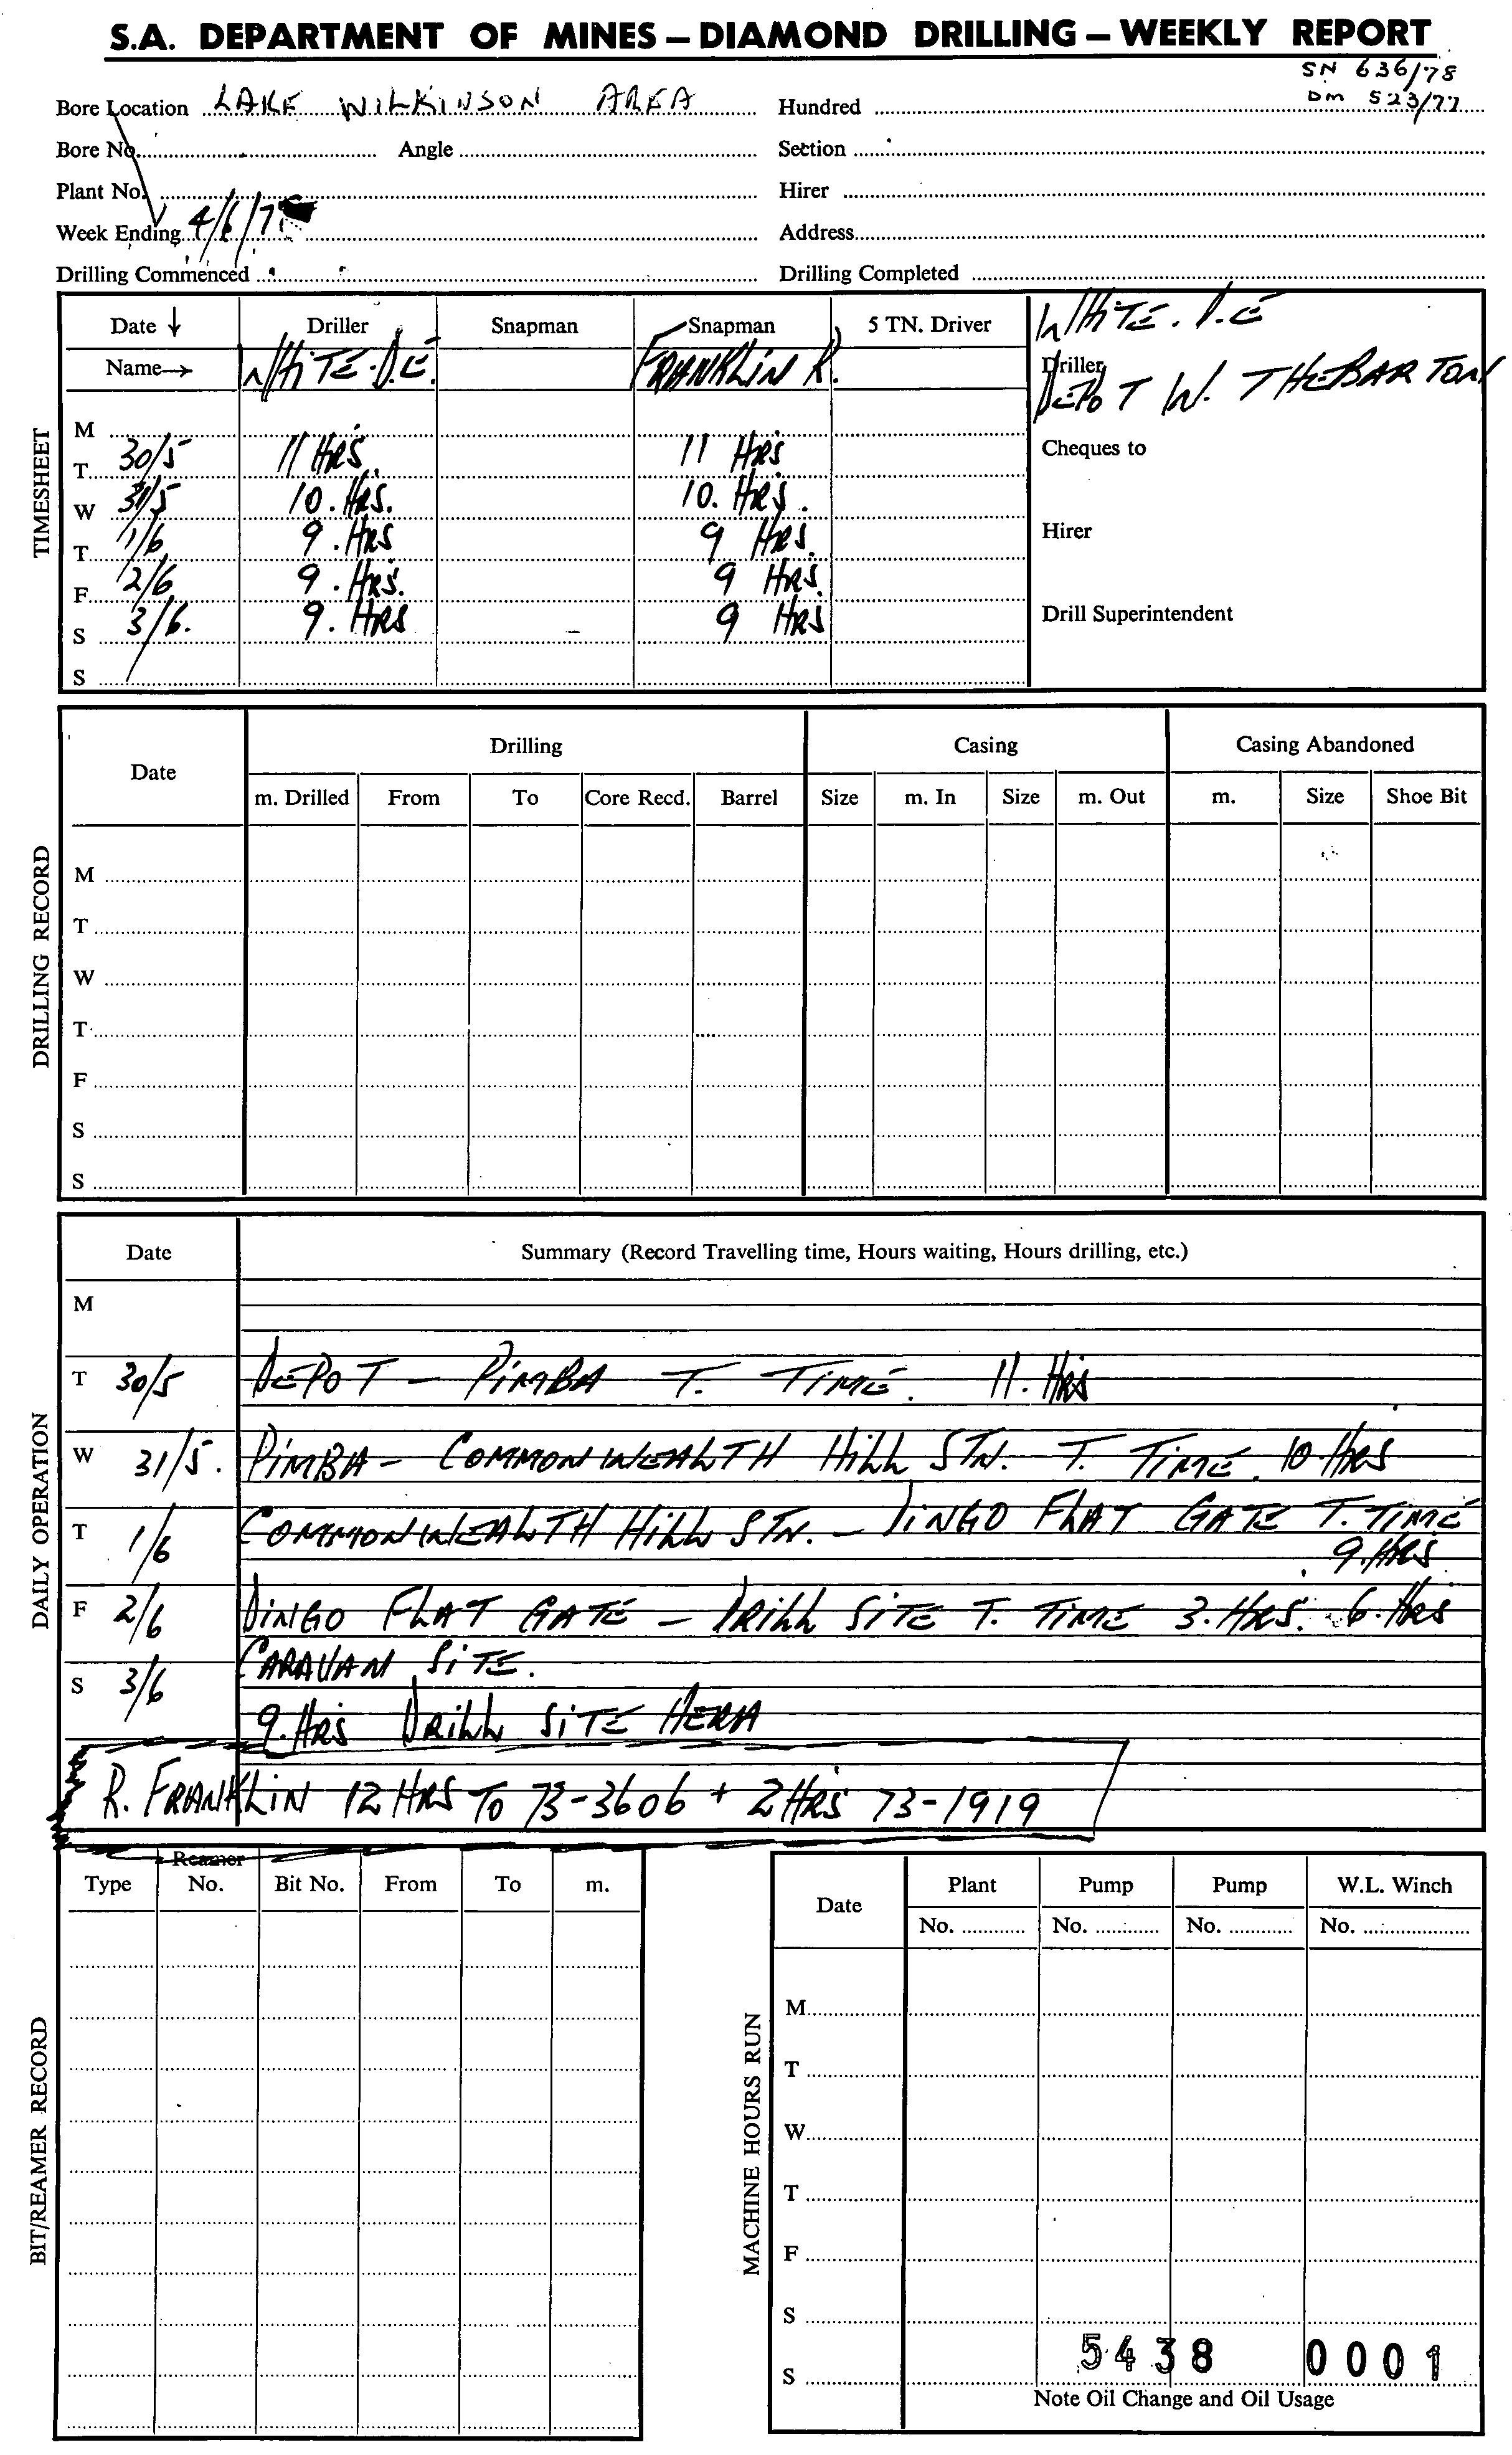 S.A. DEPARTMENT OF MINES — DIAMOND DRILLING — WEEKLY REPORT
SN 636/78
DM 523/77
Bore Location LAKE WILKINSON AREA Hundred
Bore No. Angle Section
Plant No. Hirer
Week Ending 4/6/7 Address
Drilling Commenced Drilling Completed
TIMESHEET
Date ↓ Driller Snapman Snapman 5 TN. Driver WHITE. D.E
Name→ WHITE. D.E. FRANKLIN R. Driller
DEPOT W. THEBARTON
M
T 30/5 11 HRS. 11 HRS Cheques to
W 31/5 10. HRS. 10. HRS.
T 1/6 9. HRS 9 HRS. Hirer
F 2/6 9. HRS. 9 HRS.
S 3/6. 9. HRS 9 HRS Drill Superintendent
S
DRILLING RECORD
Date Drilling Casing Casing Abandoned
m. Drilled From To Core Recd. Barrel Size m. In Size m. Out m. Size Shoe Bit
M
T
W
T
F
S
S
DAILY OPERATION
Date Summary (Record Travelling time, Hours waiting, Hours drilling, etc.)
M
T 30/5 DEPOT — PIMBA T. TIME. 11. HRS
W 31/5. PIMBA — COMMONWEALTH HILL STN. T. TIME. 10 HRS
T 1/6 COMMONWEALTH HILL STN. — DINGO FLAT GATE T. TIME
9. HRS
F 2/6 DINGO FLAT GATE — DRILL SITE T. TIME 3. HRS. 6. HRS
CARAVAN SITE.
S 3/6
9. HRS DRILL SITE
R. FRANKLIN 12 HRS TO 73-3606 + 2 HRS 73-1919
BIT/REAMER RECORD
Reamer
Type No. Bit No. From To m.
MACHINE HOURS RUN
Date Plant Pump Pump W.L. Winch
No. No. No. No.
M
T
W
T
F
S
S
5438 0001
Note Oil Change and Oil Usage